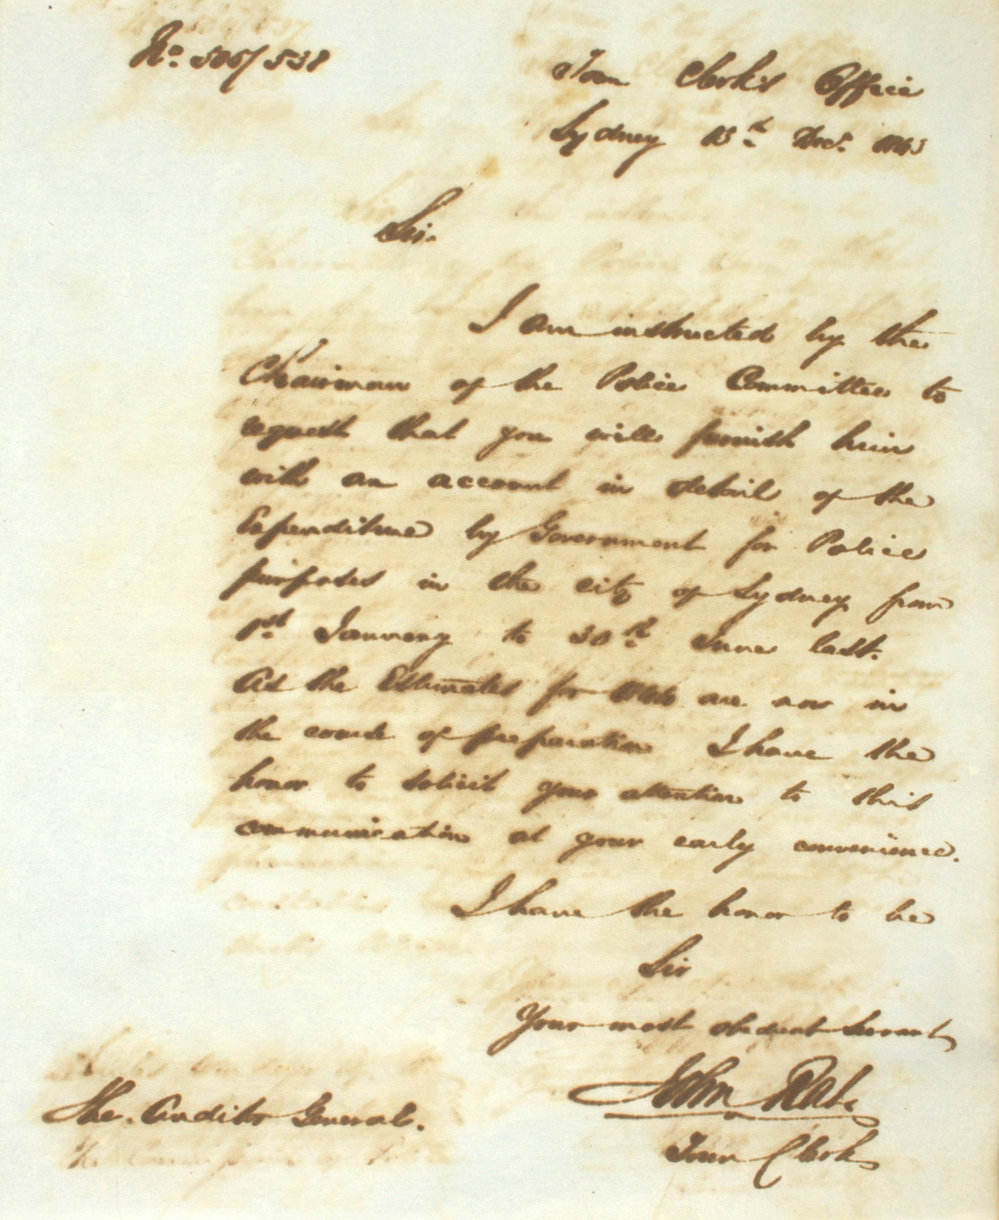 No. 506/538
Town Clerk's Office
Sydney 13th Decr. 1843
Sir.
I am instructed by the
Chairman of the Police Committee to
request that you will furnish him
with an account in detail of the
Expenditure by Government for Police
purposes in the city of Sydney from
1st January to 30th June last.
As the Estimates for 1844 are now in
the course of preparation I have the
honor to solicit your attention to this
communication at your early convenience.
I have the honor to be
Sir
Your most obedient Servant
John
Town Clerk
The Auditor General.